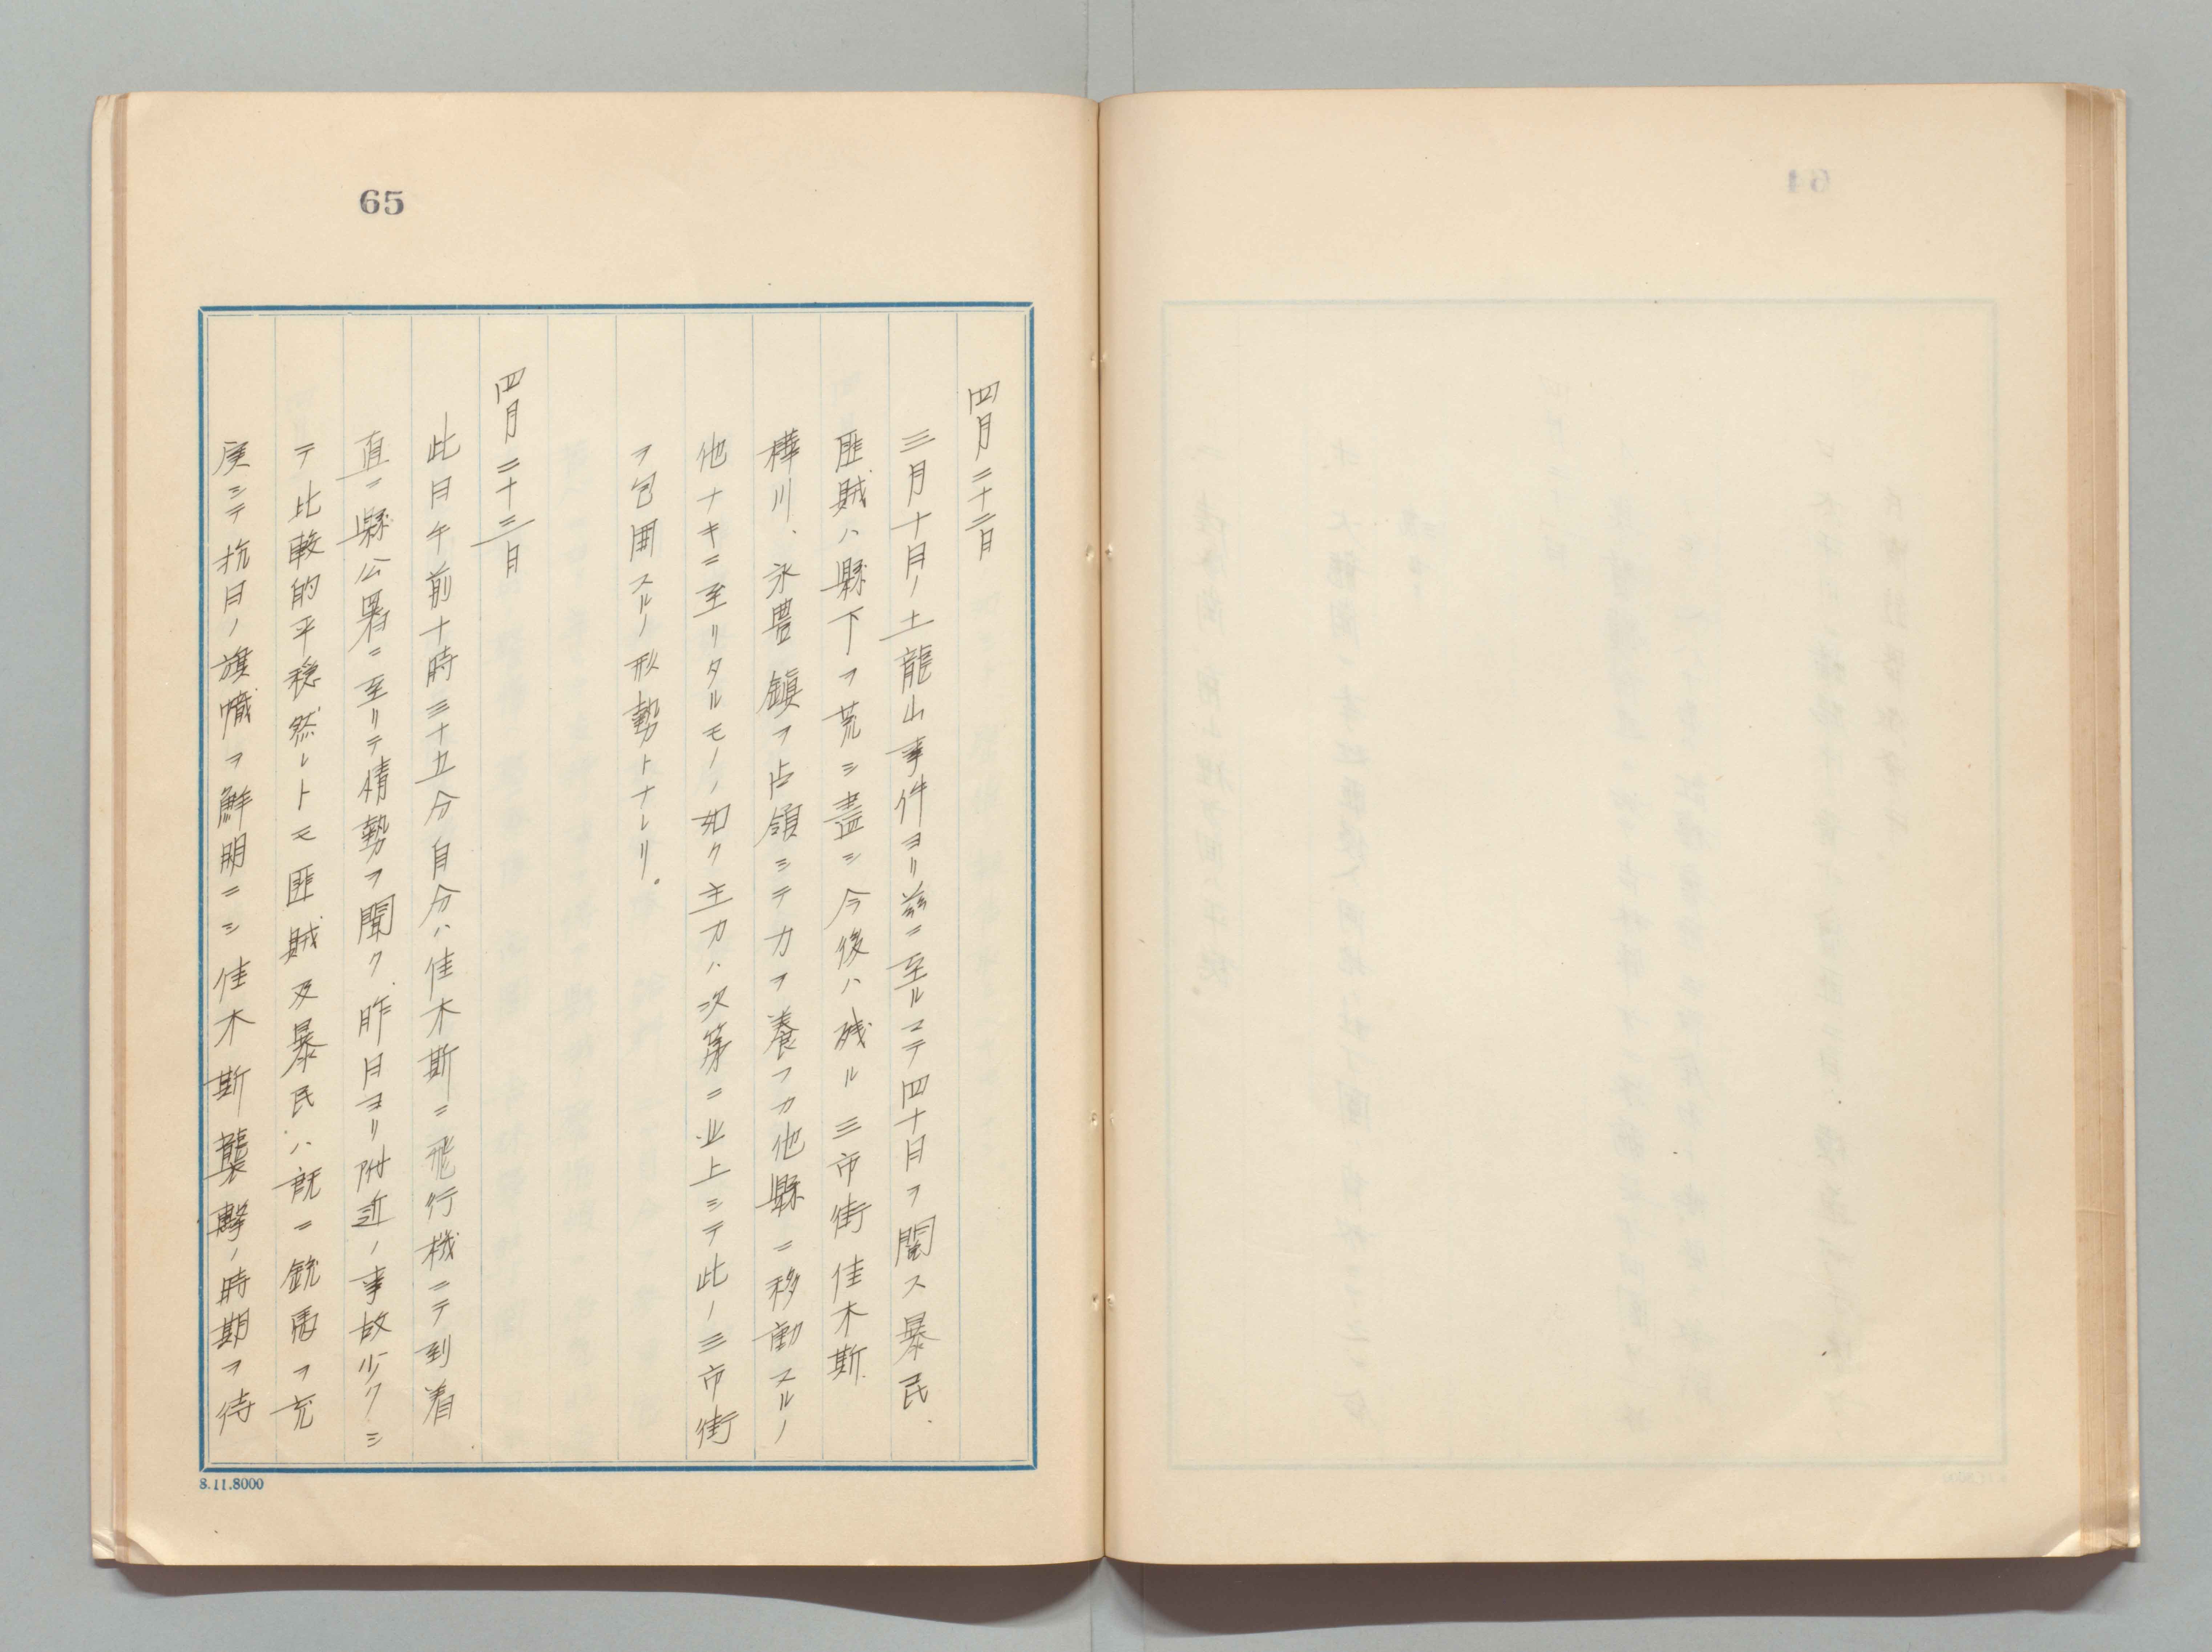 65
四月二十二日
三月十日ノ土龍山事件ヨリ茲ニ至ルマテ四十日ヲ閲ス暴民、
匪賊ハ縣下ヲ荒シ盡シ今後ハ残ル三市街佳木斯、
樺川、永豊鎮ヲ占領シテ力ヲ養フカ他縣ニ移動スルノ
他ナキニ至リタルモノノ如ク主力ハ次第ニ北上シテ此ノ三市街
ヲ包囲スルノ形勢トナレリ。
四月二十三日
此日午前十時三十五分自分ハ佳木斯ニ飛行機ニテ到着
直ニ縣公署ニ至リテ情勢ヲ聞ク、昨日ヨリ附近ノ事故少クシ
テ比較的平穏然レトモ匪賊及暴民ハ既ニ銃馬ヲ充
実シテ抗日ノ旗幟ヲ鮮明ニシ佳木斯襲撃ノ時期ヲ待
8.11.8000